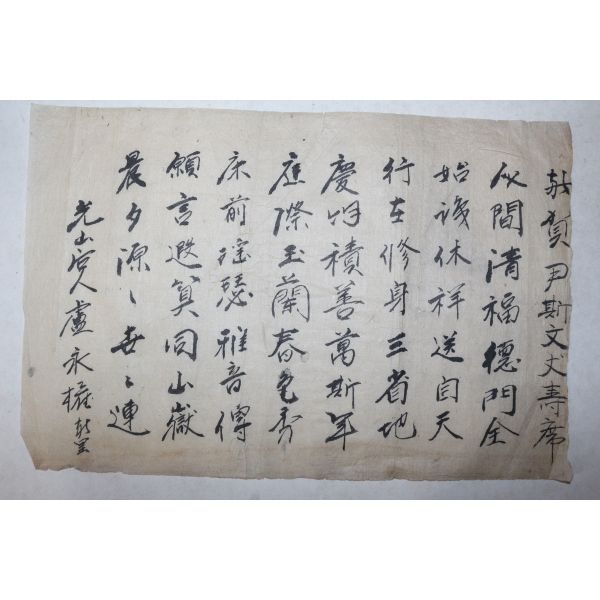 敬賀尹斯文丈壽席
人間清福德門全
始識休祥送自天
行在修身三省地
慶積善萬斯年
庭際玉蘭春色秀
床前瑤瑟雅音傳
願言遐算同山嶽
晨夕源〻世〻連
光山后人盧永敬呈